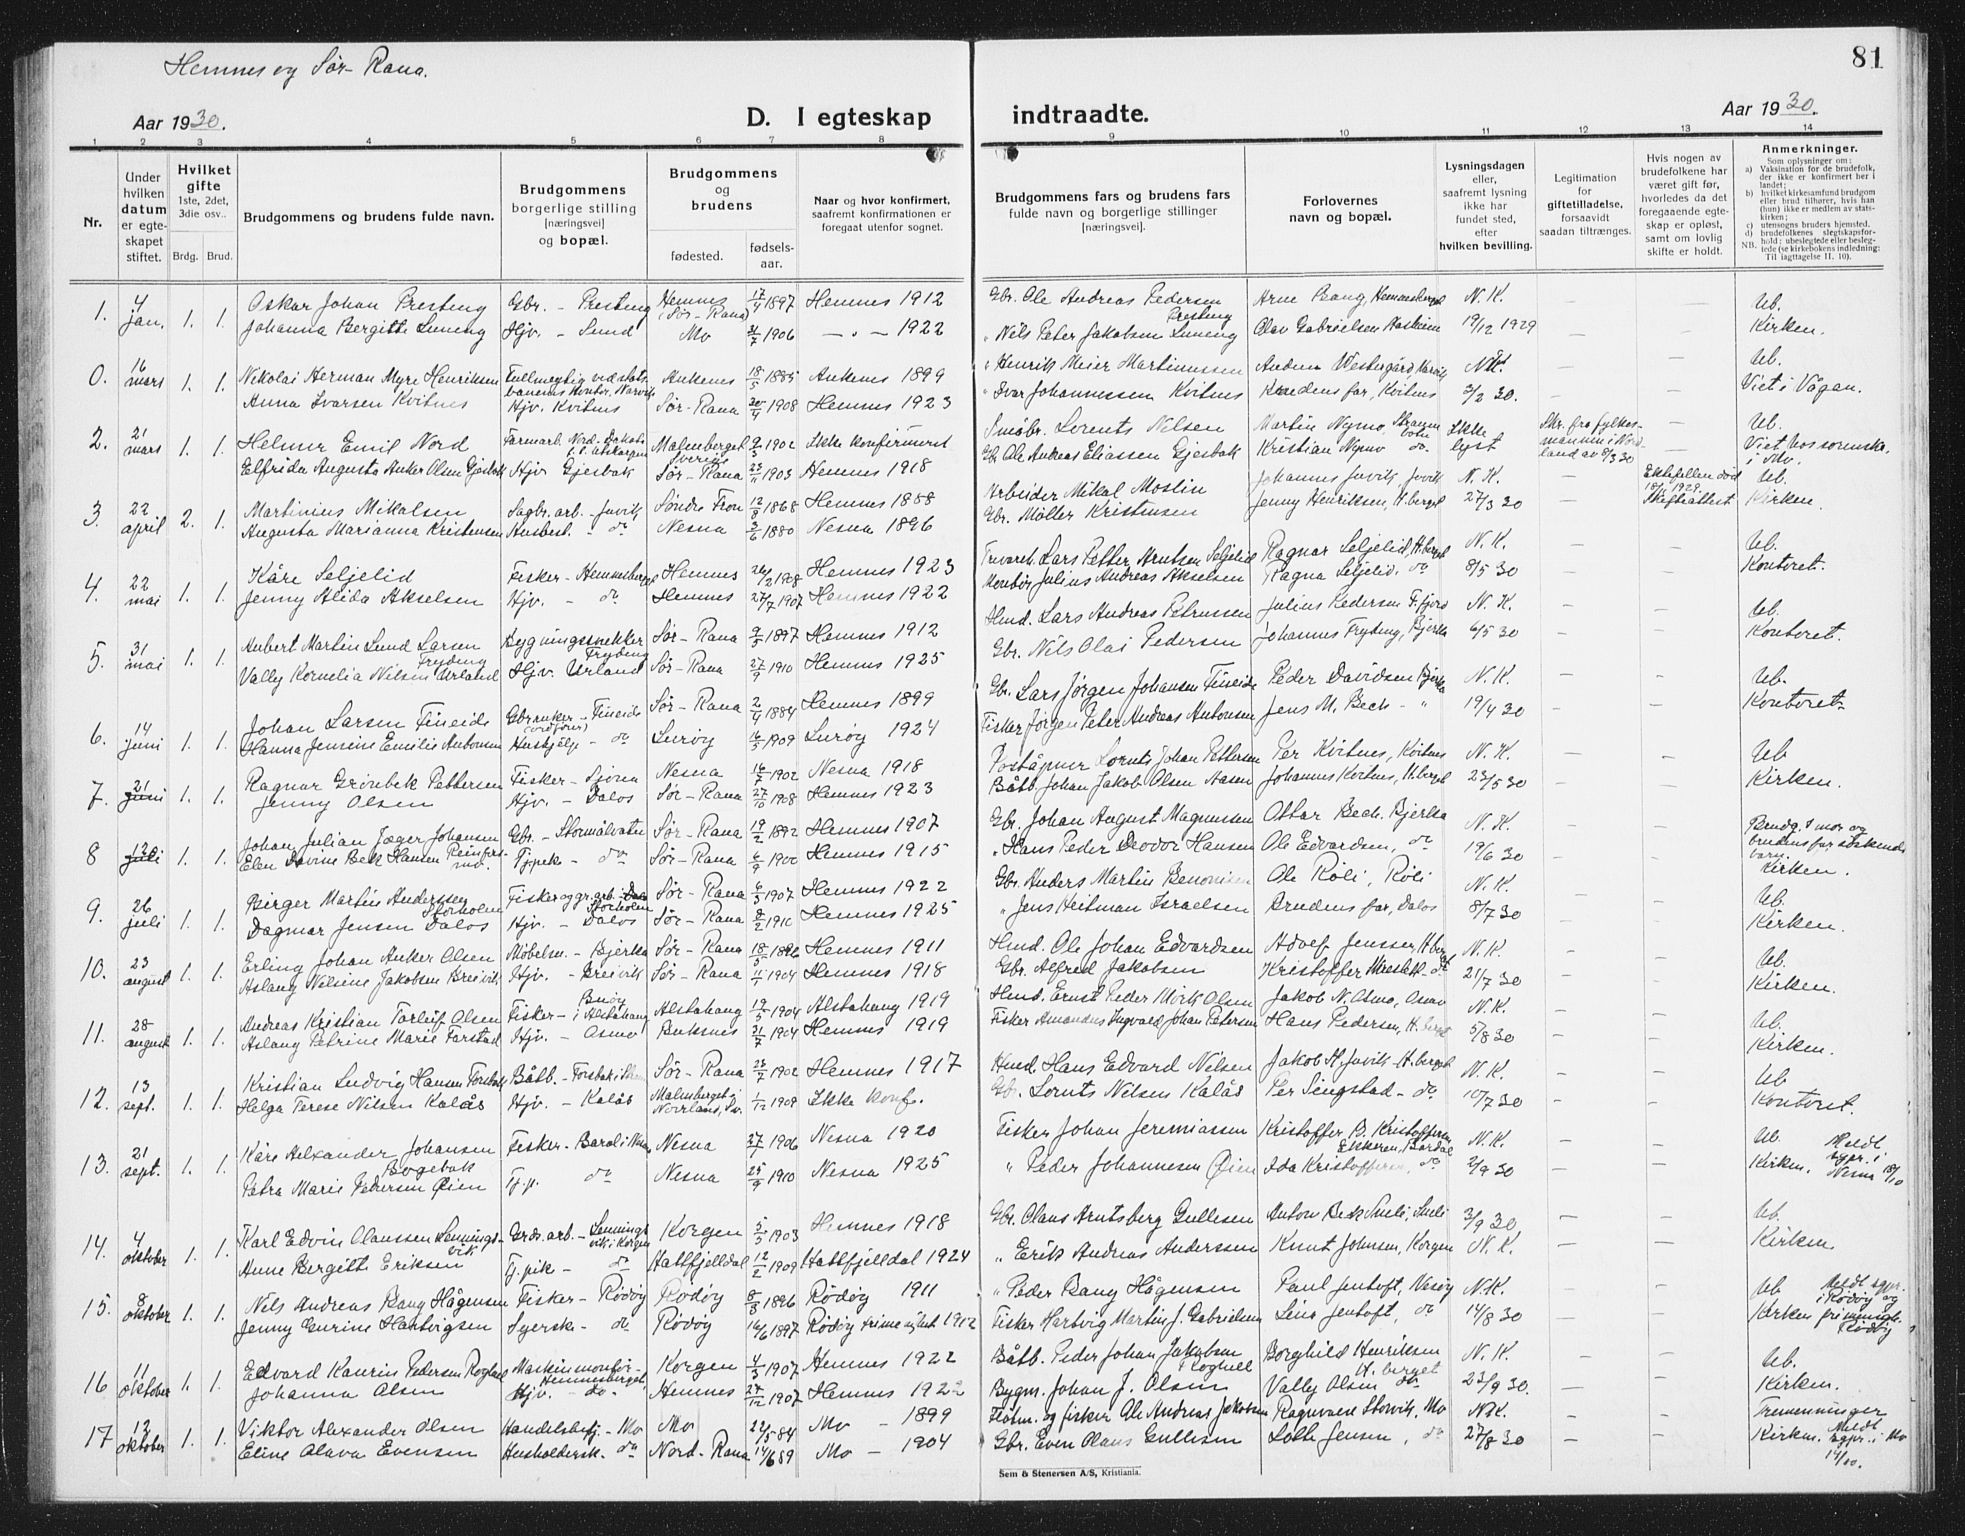 Hemnes og Sør-Rana.
81
Aar 1930.
D. I egteskap indtraadte.
Aar 1930.
1 2 3 4 5 6 7 8 9 10 11 12 13 14
Nr.
Under hvilken datum er egteskapet stiftet.
Hvilket gifte 1ste, 2det, 3die osv..
Brdg. Brud.
Brudgommens og brudens fulde navn.
Brudgommens borgerlige stilling [næringsvei] og bopæl.
Brudgommens og brudens
fødested.
fødselsaar.
Naar og hvor konfirmert, saafremt konfirmationen er foregaat utenfor sognet.
Brudgommens fars og brudens fars fulde navn og borgerlige stillinger [næringsvei].
Forlovernes navn og bopæl.
Lysningsdagen eller, saafremt lysning ikke har fundet sted, efter hvilken bevilling.
Legitimation for giftetilladelse, forsaavidt saadan tiltrænges.
Hvis nogen av brudefolkene har været gift før, hvorledes da det foregaaende egteskap er opløst, samt om lovlig skifte er holdt.
Anmerkninger.
Som oplysninger om:
a) Vaksination for de brudefolk, der ikke er konfirmert her i landet;
b) hvilket kirkesamfund brudgom eller brud tilhører, hvis han (hun) ikke er medlem av statskirken;
c) utensogns bruders hjemsted.
d) brudefolkenes slegtskapsforhold: ubeslegtede eller beslegtede (se kirkebokens indledning:
NB. Til iagttagelse II. 10).
1. 4 jan. 1. 1. Oskar Johan Presteng Gbr. - Presteng Hemnes (Sør-Rana) 17/4 1897 Hemnes 1912 Gbr. Ole Andreas Pedersen Presteng Hemnesberget N.K. Ub.
Johanna Bergitte Luneng Hjv. - Lund Mo 31/7 1906 - " - 1922 " Nils Peter Jakobsen Luneng Olav Gabrielsen 19/12 1929 Kirken.
0. 16 mars 1. 1. Nikolai Herman Myre Henriksen Ankenes 18/5 1885 Ankenes 1899 " Henrik Meier Martinussen N.K. Ub.
Anna Ivarsen Kvitnes Hjv. Kvitnes Sør-Rana 20/4 1908 Hemnes 1923 " Ivar Johannessen Kvitnes Brudens far, Kvitnes 3/2 30. Viet i Vågan.
2. 21 mars 1. 1. Helmer Emil Nord Farmarb. Nord-Dakota Malmberget Sverige 9/5 1902 Ikke konfirmert Småbr. Lorents Nilsen Martin Nymo, Ikke lyst Skr. fra fylkesmannen i Nordland av 8/3 30 Ub.
Elfrida Augusta Anker Olsen Gjesbak Hjv Gjesbak Sør-Rana 23/11 1903 Hemnes 1918 Gbr Ole Andreas Eliassen Gjesbak Kristian Nymo do. Viet hos sorenskr. i Mo.
3. 22 april 2. 1. Martinius Mikalsen Sagbr.arb. Juvik Søndre Fron 12/8 1868 Hemnes 1888 Arbeider Mikal Moslin Johannes Juvik, Juvik N.K. Ektefellen død 18/1 1929. Skifteattest Ub.
Augusta Marianna Kristensen Husbest. - do Nesna 3/6 1880 Nesna 1896 Gbr. Møller Kristensen Jenny Henriksen, H.berget 27/3 30 Kirken.
4. 22 mai 1. 1. Kåre Seljelid Fisker - Hemnesberget Hemnes 26/2 1908 Hemnes 1923 Lars Petter Arntsen Seljelid Ragnar Seljelid, H.berget N.K. Ub.
Jenny Alida Akselsen Hjv. - do Hemnes 27/7 1907 Hemnes 1922 Julius Andreas Akselsen Ragna Seljelid, do 8/5 30 Kontoret.
5. 31 mai 1. 1. Hubert Martin Lund Larsen Fryding Bygningssnekker Fryding Sør-Rana 9/5 1897 Hemnes 1912 Hmd. Lars Andreas Petrussen Julius Pedersen F.fjord N.K. Ub.
Vally Kornelia Nilsen Urland Hjv. Urland Sør-Rana 27/9 1910 Hemnes 1925 Gbr. Nils Olai Pedersen Johannes Fryding, Bjerka 6/5 30 Kontoret.
6. 14 juni 1. 1. Johan Larsen Fineide Gbr.enker - Fineide Sør-Rana 2/4 1884 Hemnes 1899 Gbr. Lars Jørgen Johansen Fineide Peder Davidsen Bjerka N.K. Ub.
Hanna Jensine Emilie Antonsen Hushjelp - do Lurøy 16/5 1909 Lurøy 1924 Fisker Jørgen Peter Andreas Antonsen Jens M. Bech - " 19/4 30 Kontoret
7. 21 juni 1. 1. Ragnar Grönbek Pettersen Fisker - Sjona Nesna 16/7 1902 Nesna 1918 Poståpner Lornts Johan Pettersen Per Kvitnes, Kvitnes N.K. Ub
Jenny Olsen Hjv. - Dalos Sør-Rana 27/10 1908 Hemnes 1923 Båtb. Johan Jakob Olsen Aasen Johannes Kvitnes, H.berget 23/5 30 Kirken.
8 12 juli 1. 1. Johan Julian Jæger Johansen Gbr. - Stormålvatn Sør-Rana 19/2 1892 Hemnes 1907 Gbr. Johan August Magnussen Ottar Bech. Bjerka N.K. Brudg.s mor og brudens far søskende barn.
Elen Davine Bek Hansen Tj.pike - do Sør-Rana 6/9 1900 Hemnes 1915 " Hans Peder Deodor Hansen Ole Edvardsen, do 19/6 30 Kirken.
9. 26 juli 1. 1. Birger Martin Anderssen Storholm Fisker og gr.arb. Storholm Sør-Rana 6/3 1907 Hemnes 1922 Gbr. Anders Martin Benonisen Ole Röli, Röli N.K. Ub.
Dagmar Jensen Dalos Hjv. - Dalos Sør-Rana 8/2 1910 Hemnes 1925 " Jens Heitman Israelsen Brudens far, Dalos 8/7 30 Kirken.
10. 23 august 1. 1. Erling Johan Anker Olsen Møbelsn. - Bjerka Sør-Rana 18/5 1896 Hemnes 1911 Hmd. Ole Johan Edvardsen Adolf Jenssen, H.berget N.K. Ub.
Aslaug Nilsine Jakobsen Breivik Hjv. - Breivik Sør-Rana 1904 Hemnes 1918 Gbr. Alfred Jakobsen Kristoffer 21/7 30 Kirken.
11. 28 august 1. 1. Andreas Kristian Torleif Olsen Fisker - i Alstahaug Alstahaug 19/5 1904 Alstahaug 1919 Hmd. Ernst Peder Olsen Jakob N. Osmo, Osmo N.K. Ub.
Aslaug Petrine Marie Farstad Hjv. - Osmo 31/7 1904 Hemnes 1919 Fisker Amandus Ingvald Johan Petersen Hans Pedersen, H.berget 5/8 30 Kirken.
12. 13 sept. 1. 1. Kristian Ludvig Hansen Forsbakk Båtb. - Forsbak Sør-Rana 23/7 1902 Hemnes 1917 Hmd. Hans Edvard Nilsen Jakob H. Juvik, H.berget N.K. Ub
Helga Terese Nilsen Kalås Hjv. - Kalås Malmberget i Norrland, Sv. 1/12 1909 Ikke konf. Gbr. Lornts Nilsen Kalås Per Sengstad - do 10/7 30 Kontoret.
13. 21 sept. 1. 1. Kåre Alexander Johansen Bogebak Fisker - Nesna 27/7 1906 Nesna 1920 Fisker Johan Jeremiassen Kristoffer B. Kristoffersen N.K. Ub. Meldt sgpr. i Nesna 18/10
Petra Marie Pedersen Øien Tj.p. do Nesna 25/9 1910 Nesna 1925 " Peder Johannesen Øien Ida Kristoffersen, do 2/9 30 Kirken.
14. 4 oktober 1. 1. Karl Edvin Olaussen Lenningsvik Grds.arb - Lenningsvik i Korgen Korgen 5/5 1903 Hemnes 1918 Gbr. Olaus Arntsberg Gullesen Anton Bech 3/9 30 Ub.
Anne Bergitte Eriksen Tj.pik - do Hattfjelldal 12/2 1909 Hattfjelldal 1924 " Erik Andreas Anderssen Knut Johnsen, Korgen N.K. Kirken
15. 8 oktober 1. 1. Nils Andreas Bang Hågensen Fisker - Rödöy Rödöy 8/3 1896 Rödöy 1911 " Peder Bang Hågensen Paul Jentoft, N.K. Ub Meldt sgpr. i Rödöy og
Jenny Gurine Hartvigsen Syersk - do Rödöy 16/6 1897 Rödöy 1912 Fisker Hartvig Martin J. Gabrielsen Lina Jentoft, do 14/8 30 Kirken Rödöy
16 11 oktober 1. 1. Edvard Kaurin Pedersen Maskinmontör - Hemnesberget Korgen 4/5 1907 Hemnes 1922 Båtb. Peder Johan Jakobsen Borghild Henriksen H.berget N.K. Ub.
Johanna Olsen Hjv. - do. Hemnes 27/12 1907 Hemnes 1922 Bygm. Johan J. Olsen Vally Olsen do 23/9 30. Kirken.
17 12 oktober 1. 1. Viktor Alexander Olsen Handelsbetj. - Mo Mo 22/5 84 Mo - 1899 Fløtm. og fisker Ole Andreas Jakobsen Ragnvald Storvik, Mo N.K. Tremenninger
Eline Olava Evensen Husholdersk. - do Nord-Rana 14/6 89 Mo - 1904 Gbr. Even Olaus Gullesen Lotte Jensen, do 27/8 30 Kirken. Meldt sgpr. i Mo 14/10.
Sem & Stenersen A/S, Kristiania.